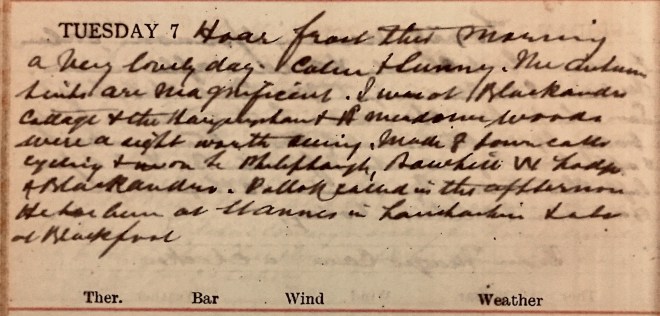 TUESDAY 7 Hoar frost this morning
a very lovely day. Calm & sunny. The autumn
tints are magnificent. I was at Blackandro
Cottage & the Hangingshaw & meadows woods
were a sight worth seeing. Made 8 town calls
cycling & was to Philiphaugh, Bowhill W Lodge
& Blackandro. Pollok called in the afternoon
He has been at St Annes in Lancashire & also
at Blackpool
Ther. Bar Wind Weather